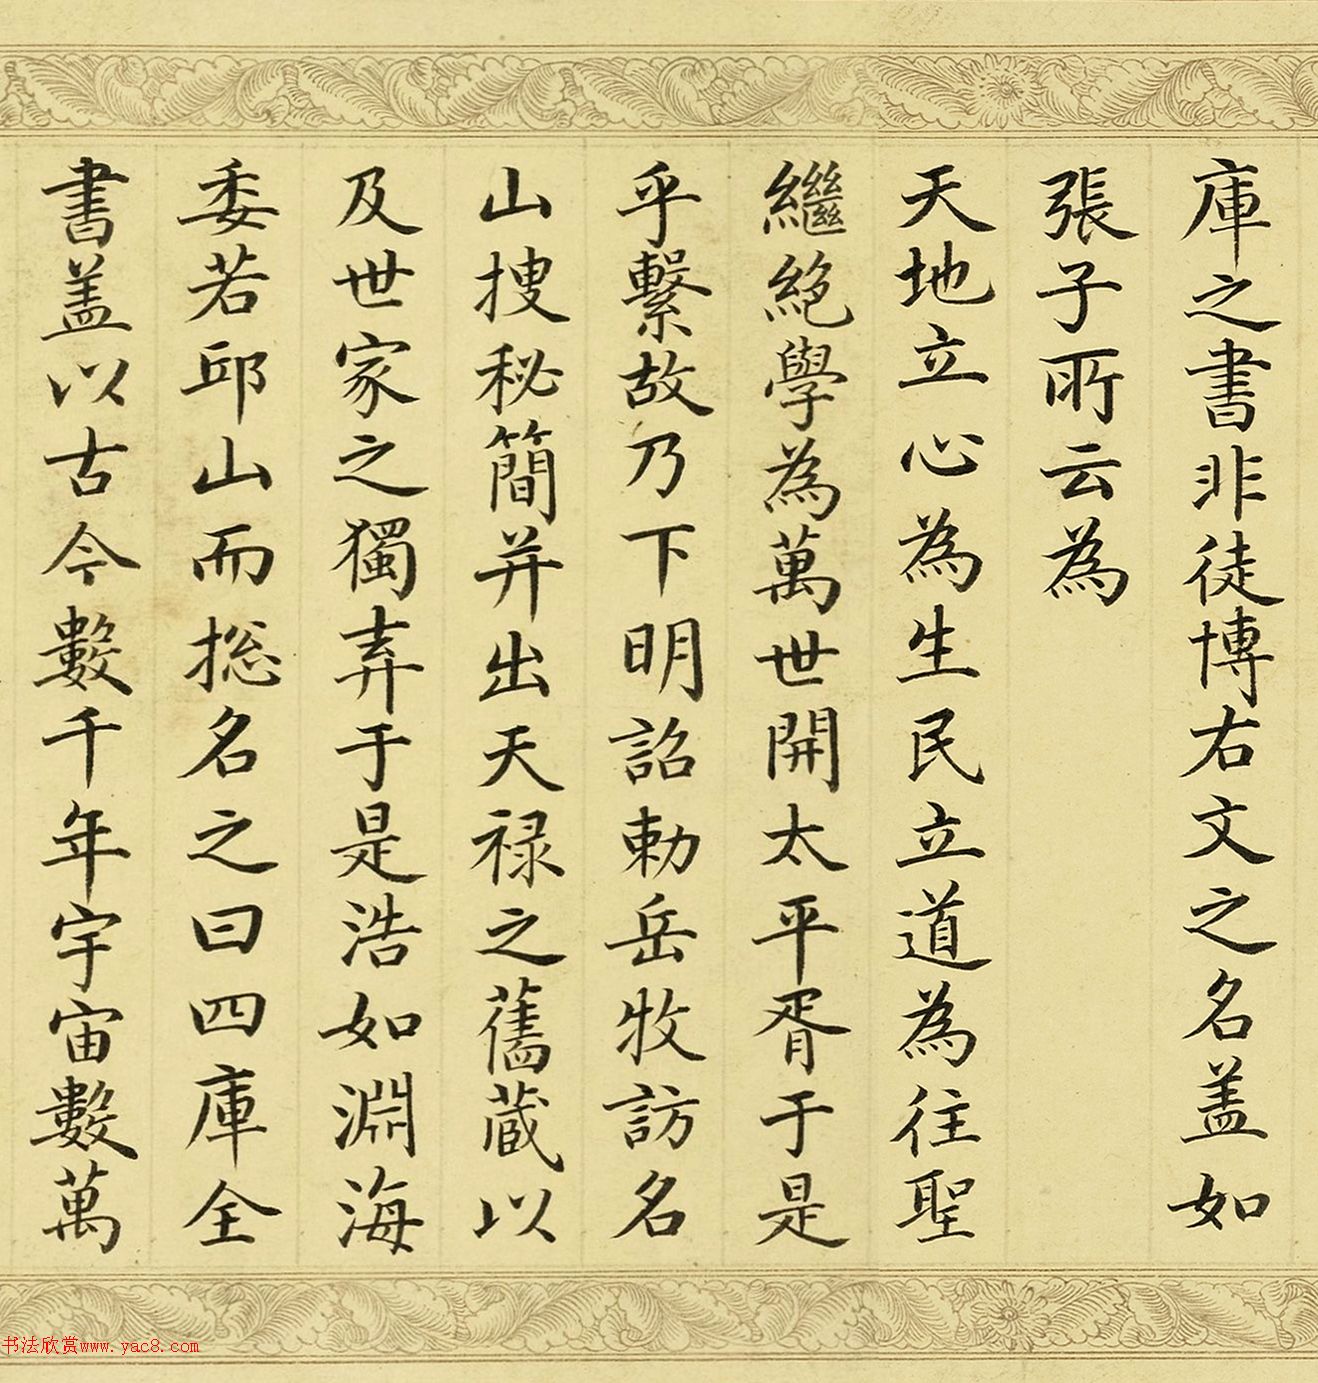 庫之書非徒博右文之名盖如
張子所云為
天地立心為生民立道為往聖
繼絶學為萬世開太平胥于是
乎繫故乃下明詔勅岳牧訪名
山捜秘簡并出天禄之舊蔵以
及世家之獨弆于是浩如淵海
委若邱山而捴名之曰四庫全
書盖以古今數千年宇宙數萬
书法欣赏www.yac8.com